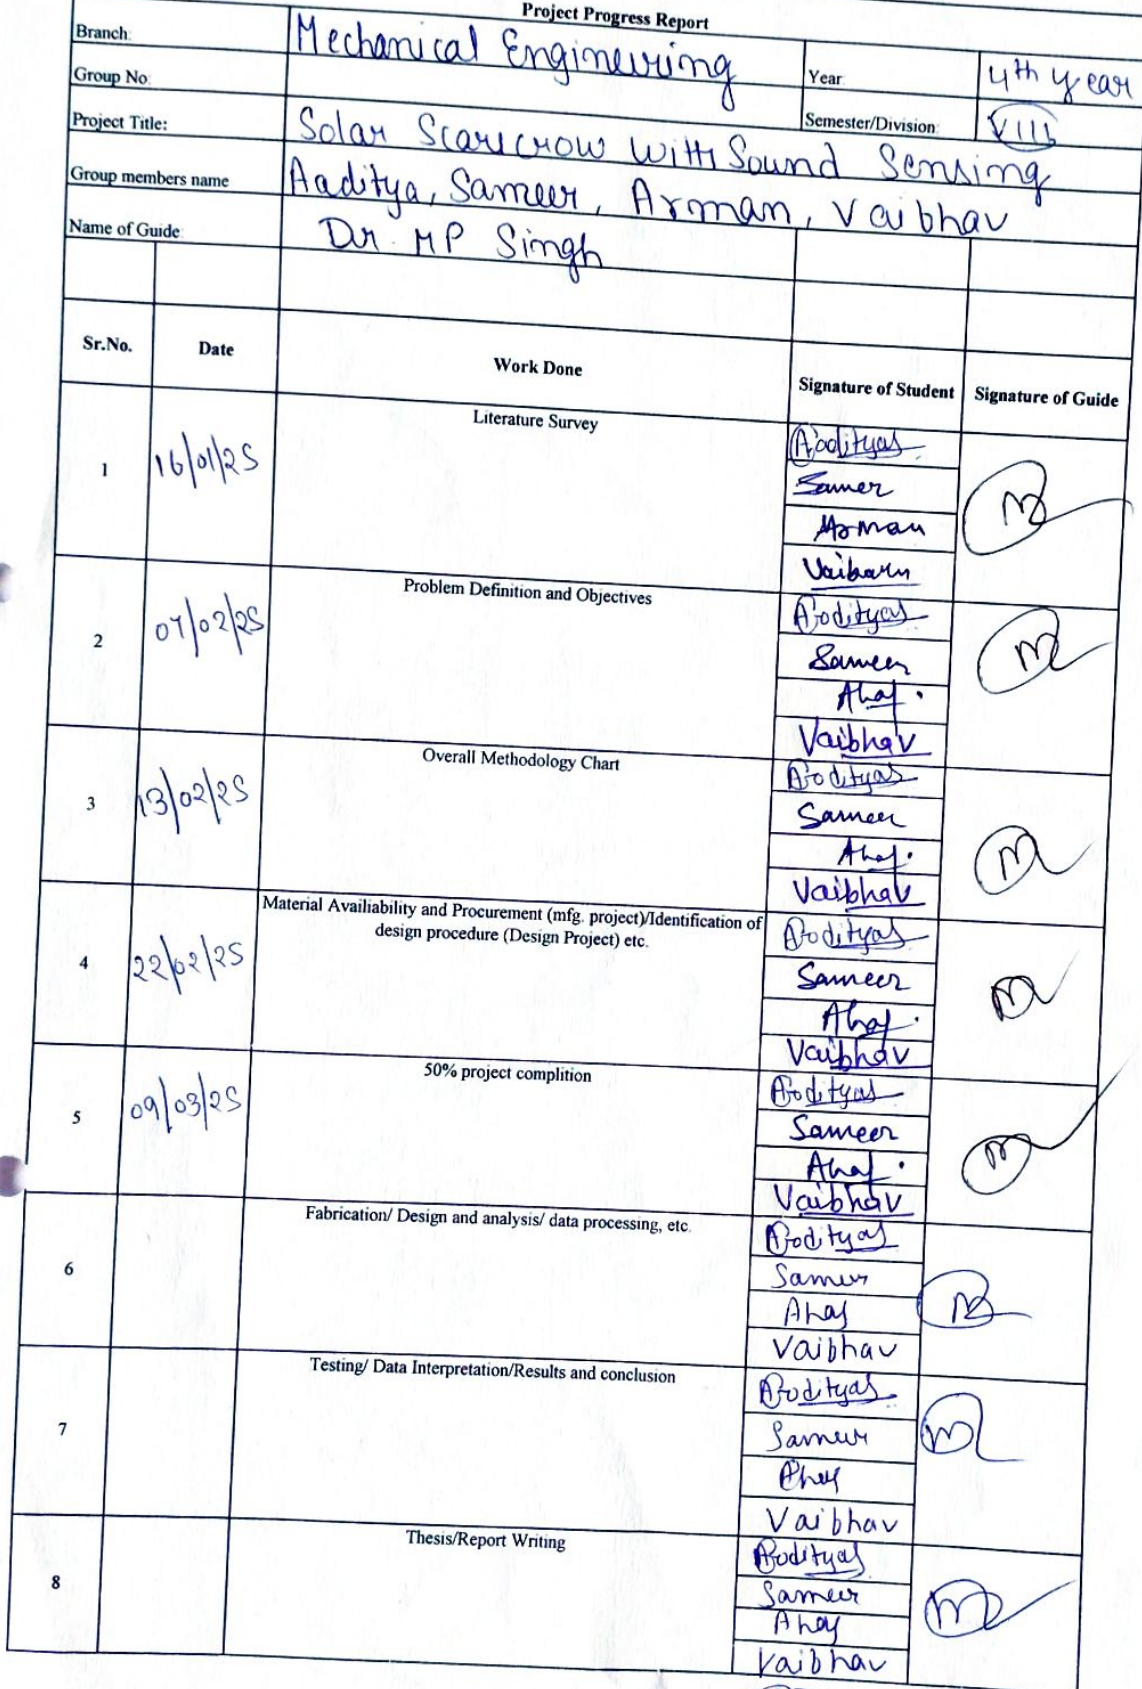 Project Progress Report
Branch: Mechanical Engineering
Group No: Year: 4th year
Semester/Division: VIII
Project Title: Solar Scarecrow with Sound Sensing
Group members name Aaditya, Sameer, Arman, Vaibhav
Name of Guide: Dr. MP Singh
Sr.No. Date Work Done Signature of Student Signature of Guide
1 16/01/25 Literature Survey
Aadityas
Sameer
Arman
2 07/02/25 Problem Definition and Objectives
Aadityas
Sameer
Vaibhav
3 13/02/25 Overall Methodology Chart
Aadityas
Sameer
Vaibhav
4 22/02/25 Material Availiability and Procurement (mfg. project)/Identification of
design procedure (Design Project) etc.
Aadityas
Sameer
Vaibhav
5 09/03/25 50% project complition
Aadityas
Sameer
Vaibhav
6 Fabrication/ Design and analysis/ data processing, etc.
Aadityas
Sameer
Vaibhav
7 Testing/ Data Interpretation/Results and conclusion
Aadityas
Sameer
Vaibhav
8 Thesis/Report Writing
Aadityas
Sameer
Vaibhav